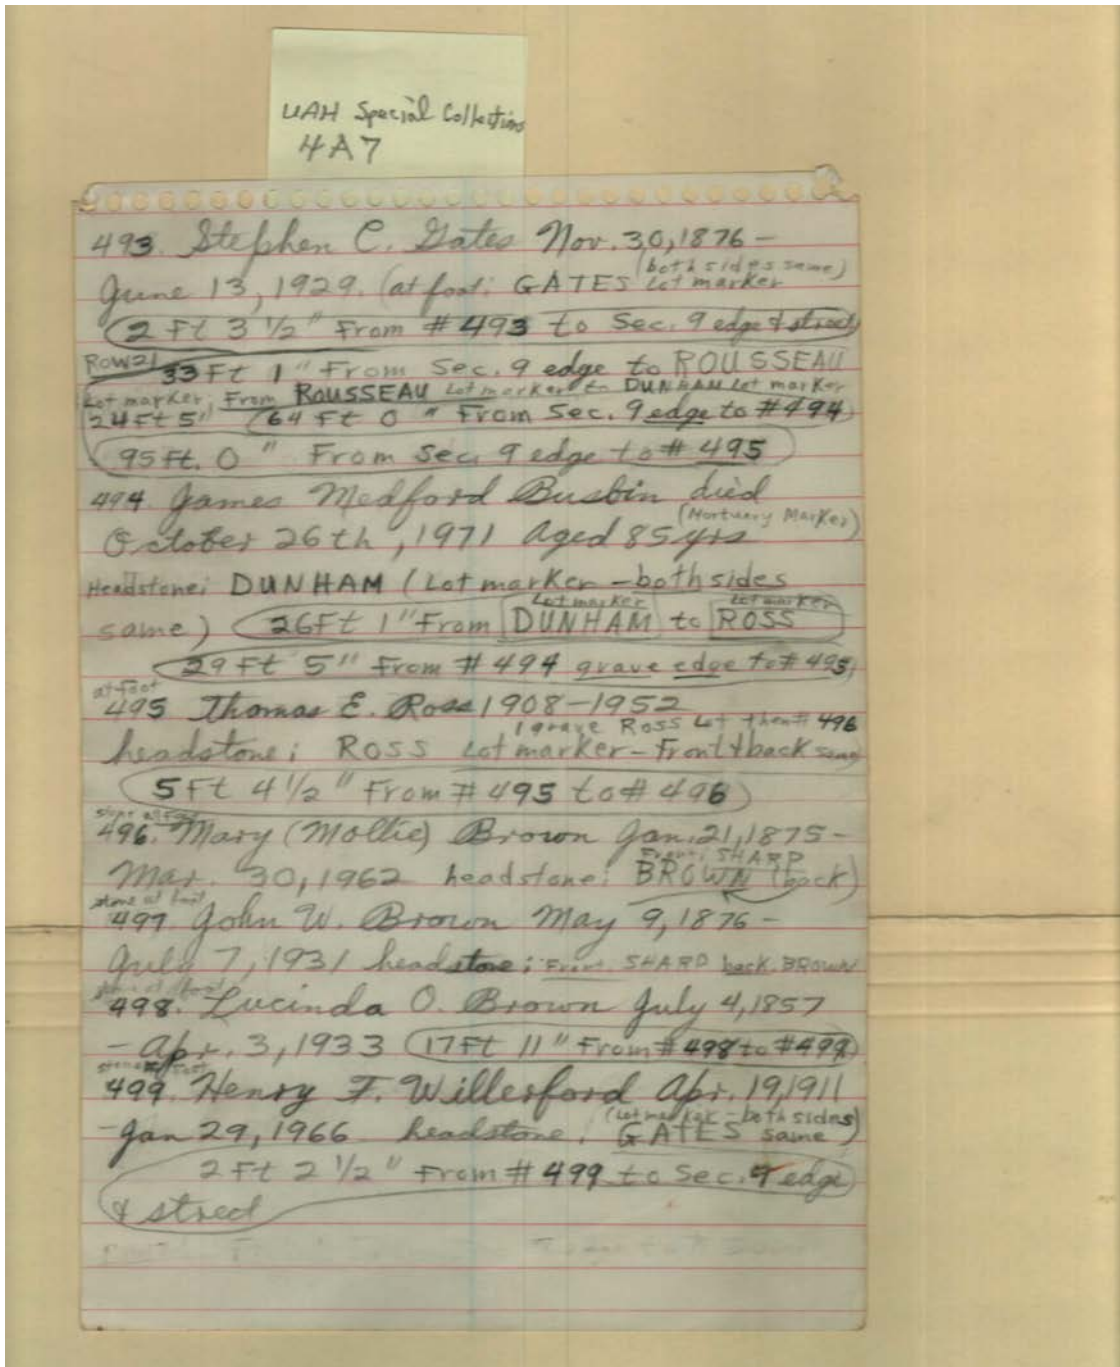 UAH Special Collections
4A7
493. Stephen C. Gates Nov. 30, 1876 –
(both sides same)
June 13, 1929. (at foot: GATES Lot marker
2 Ft 3 1/2" From # 493 to Sec. 9 edge & street
Row 21
33 Ft 1" From Sec. 9 edge to ROUSSEAU
Lot marker; From ROUSSEAU Lot marker to DUNHAM Lot marker
24 Ft 5" 64 Ft 0" From Sec. 9 edge to #494
95 Ft. 0" From Sec. 9 edge to # 495
494. James Medford Busbin died
(Mortuary Marker)
October 26th, 1971 Aged 85 yrs
Headstone; DUNHAM (Lot marker – both sides
Lot marker Lot marker
same) 26 Ft 1" From DUNHAM to ROSS
29 Ft 5" From # 494 grave edge to # 495
at foot
495 Thomas E. Ross 1908–1952
1 grave Ross Lot then # 496
headstone; ROSS Lot marker – Front & back same
5 Ft 4 1/2" From # 495 to # 496
496. Mary (Mollie) Brown Jan. 21, 1875 –
Front: SHARP
Mar. 30, 1962 headstone: BROWN (back)
stone at foot
497. John W. Brown May 9, 1876 –
July 7, 1931 headstone; Front. SHARP back. BROWN
stone at foot
498. Lucinda O. Brown July 4, 1857
– Apr. 3, 1933 17 Ft 11" From # 498 to # 499
stone at foot
499. Henry F. Willesford Apr. 19, 1911
(Lot marker – both sides
– Jan 29, 1966 headstone. GATES same)
2 Ft 2 1/2" From # 499 to Sec. 9 edge
& street